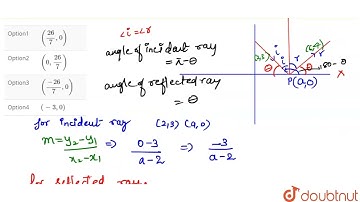 Option1 (26/7, 0)
Option2 (0, 26/7)
Option3 (-26/7, 0)
Option4 (-3, 0)
∠i = ∠r
angle of incident ray
= π-θ
angle of reflected ray
= θ
(2,3)
i
i
r
r
θ
θ
P(a,0)
X
for incident ray (2,3) (a,0)
m = y₂-y₁/x₂-x₁ ⇒ 0-3/a-2 ⇒ -3/a-2
for reflected ray:
doubtnut